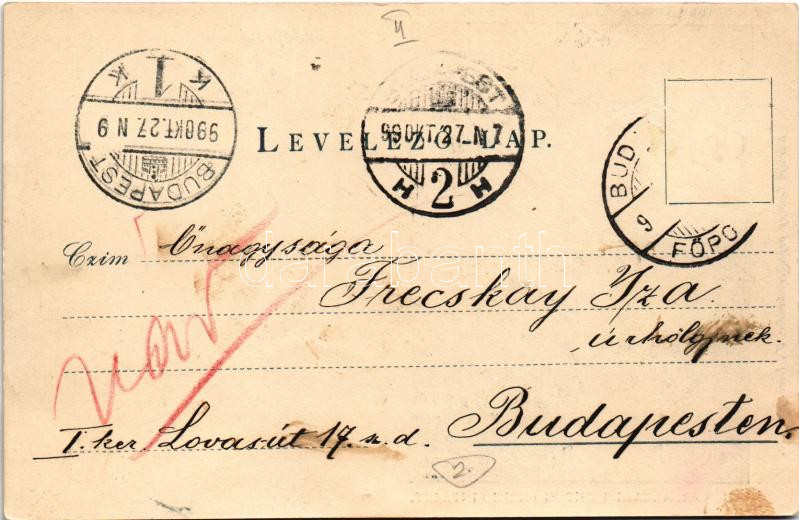 II
BUDAPEST
990KT.27.N 9
K 1 K
990KT.27.N 7
H 2 H
BUD
FŐPO
LEVELEZŐ-LAP.
Czim Őnagysága
Frecskay Iza
úrhölgynek.
I. ker. Lovasút 17. sz. d. Budapesten.
2.
darabanth